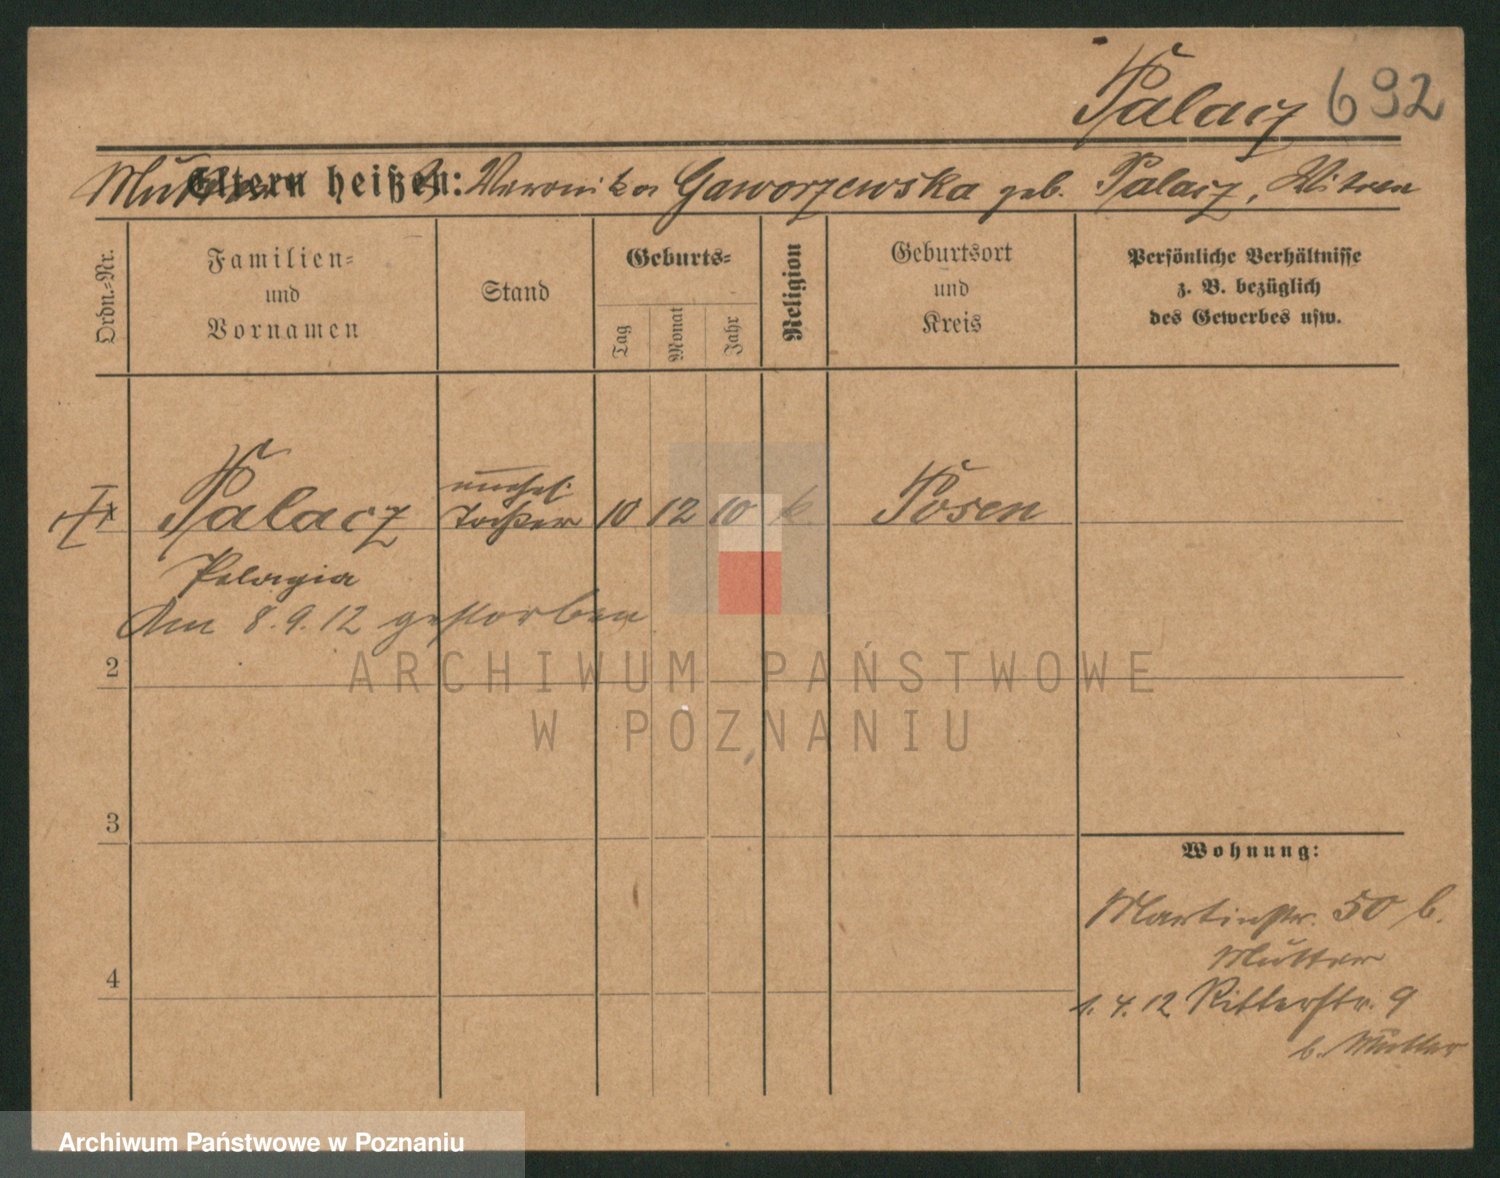 Palacz 692
Mutter Eltern heißen: Veronika Gaworzewska geb. Palacz, Witwe
Ordn.-Nr.
Familien-
und
Vornamen
Stand
Geburts-
Tag
Monat
Jahr
Religion
Geburtsort
und
Kreis
Persönliche Verhältnisse
z. B. bezüglich
des Gewerbes usw.
Palacz unehel. Tochter 10 12 10 k Posen
Pelagia
Am 8.9.12 gestorben
2
3
4
Wohnung:
Martinstr. 50 b.
Mutter
1.4.12 Ritterstr. 9
b. Mutter
ARCHIWUM PAŃSTWOWE
W POZNANIU
Archiwum Państwowe w Poznaniu